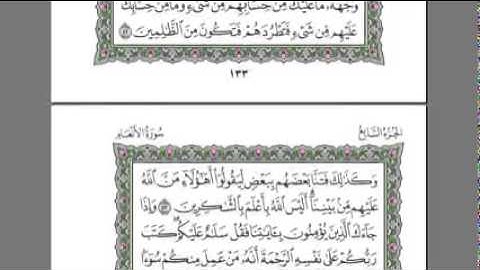 وَجْهَهُۥ مَا عَلَيْكَ مِنْ حِسَابِهِم مِّن شَىْءٍ وَمَا مِنْ حِسَابِكَ
عَلَيْهِم مِّن شَىْءٍ فَتَطْرُدَهُمْ فَتَكُونَ مِنَ ٱلظَّـٰلِمِينَ ٥٢
١٣٣
الجزء السابع
سورة الأنعام
وَكَذَٰلِكَ فَتَنَّا بَعْضَهُم بِبَعْضٍ لِّيَقُولُوٓا۟ أَهَـٰٓؤُلَآءِ مَنَّ ٱللَّهُ
عَلَيْهِم مِّنۢ بَيْنِنَآ أَلَيْسَ ٱللَّهُ بِأَعْلَمَ بِٱلشَّـٰكِرِينَ ٥٣ وَإِذَا
جَآءَكَ ٱلَّذِينَ يُؤْمِنُونَ بِـَٔايَـٰتِنَا فَقُلْ سَلَـٰمٌ عَلَيْكُمْ كَتَبَ
رَبُّكُمْ عَلَىٰ نَفْسِهِ ٱلرَّحْمَةَ أَنَّهُۥ مَنْ عَمِلَ مِنكُمْ سُوٓءًۢا